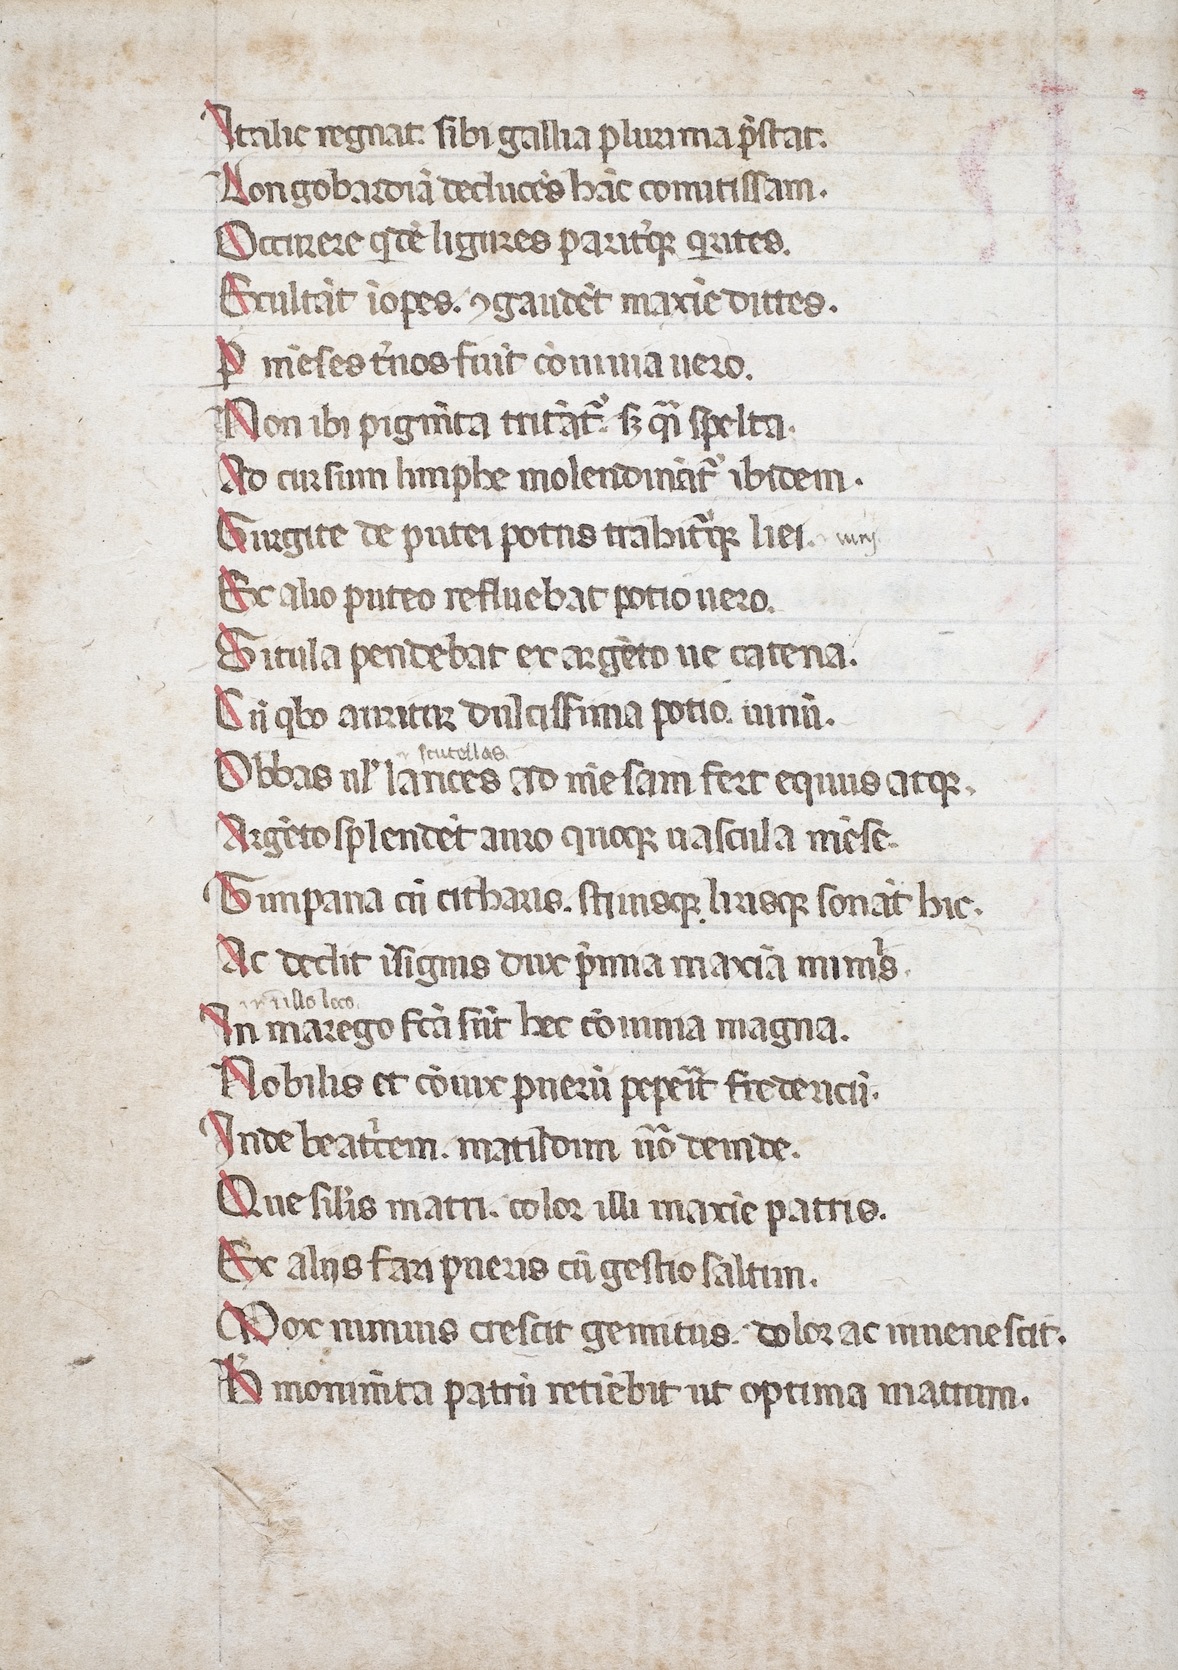 Italie regnat. sibi gallia plurima p̄stat.
Longobardiā deduces hāc comitissam.
Occurere q̄dē ligures parit̓qꝫ q̓rites.
Exultāt īopes. ꝯgaudēt maxīe dittes.
ꝑ mēses t̓nos fuit cōuiuia uero.
Non ibi pigm̄ta tritāt᷑. sꝫ q̄si spelta.
Ad cursum limphe molendināt᷑ ibidem.
Gurgite de putei potus trahit᷑qꝫ liei. uinj
Ex alio puteo refluebat potio uero.
Situla pendebat ex argēto ue catena.
Cū qbꝫ auritur dulcissima potio. uinū.
scutellas
Obbas ul̓ lances ad mēsam fert equus atqꝫ.
Argēto splendēt auro quoqꝫ uascula mēse.
Timpana cū citharis. stiuisqꝫ lirisqꝫ sonāt hic.
Ac dedit īsignis dux p̄mia maxīa mimis.
ī illo loco
In marego fc̄a sūt hec cōuiuia magna.
Nobilis et cōiux puerū pepeīt fredericū.
Inde beat̓cem. matildim u̅o deinde.
Que sil̓is matri. color illi maxīe patris.
Ex alijs fari pueris cū gestio saltim.
Mox nimius crescit gemitus. dolor ac iuuenescit.
H̓ monim̄ta patrū retiēbit ut optima matrum.